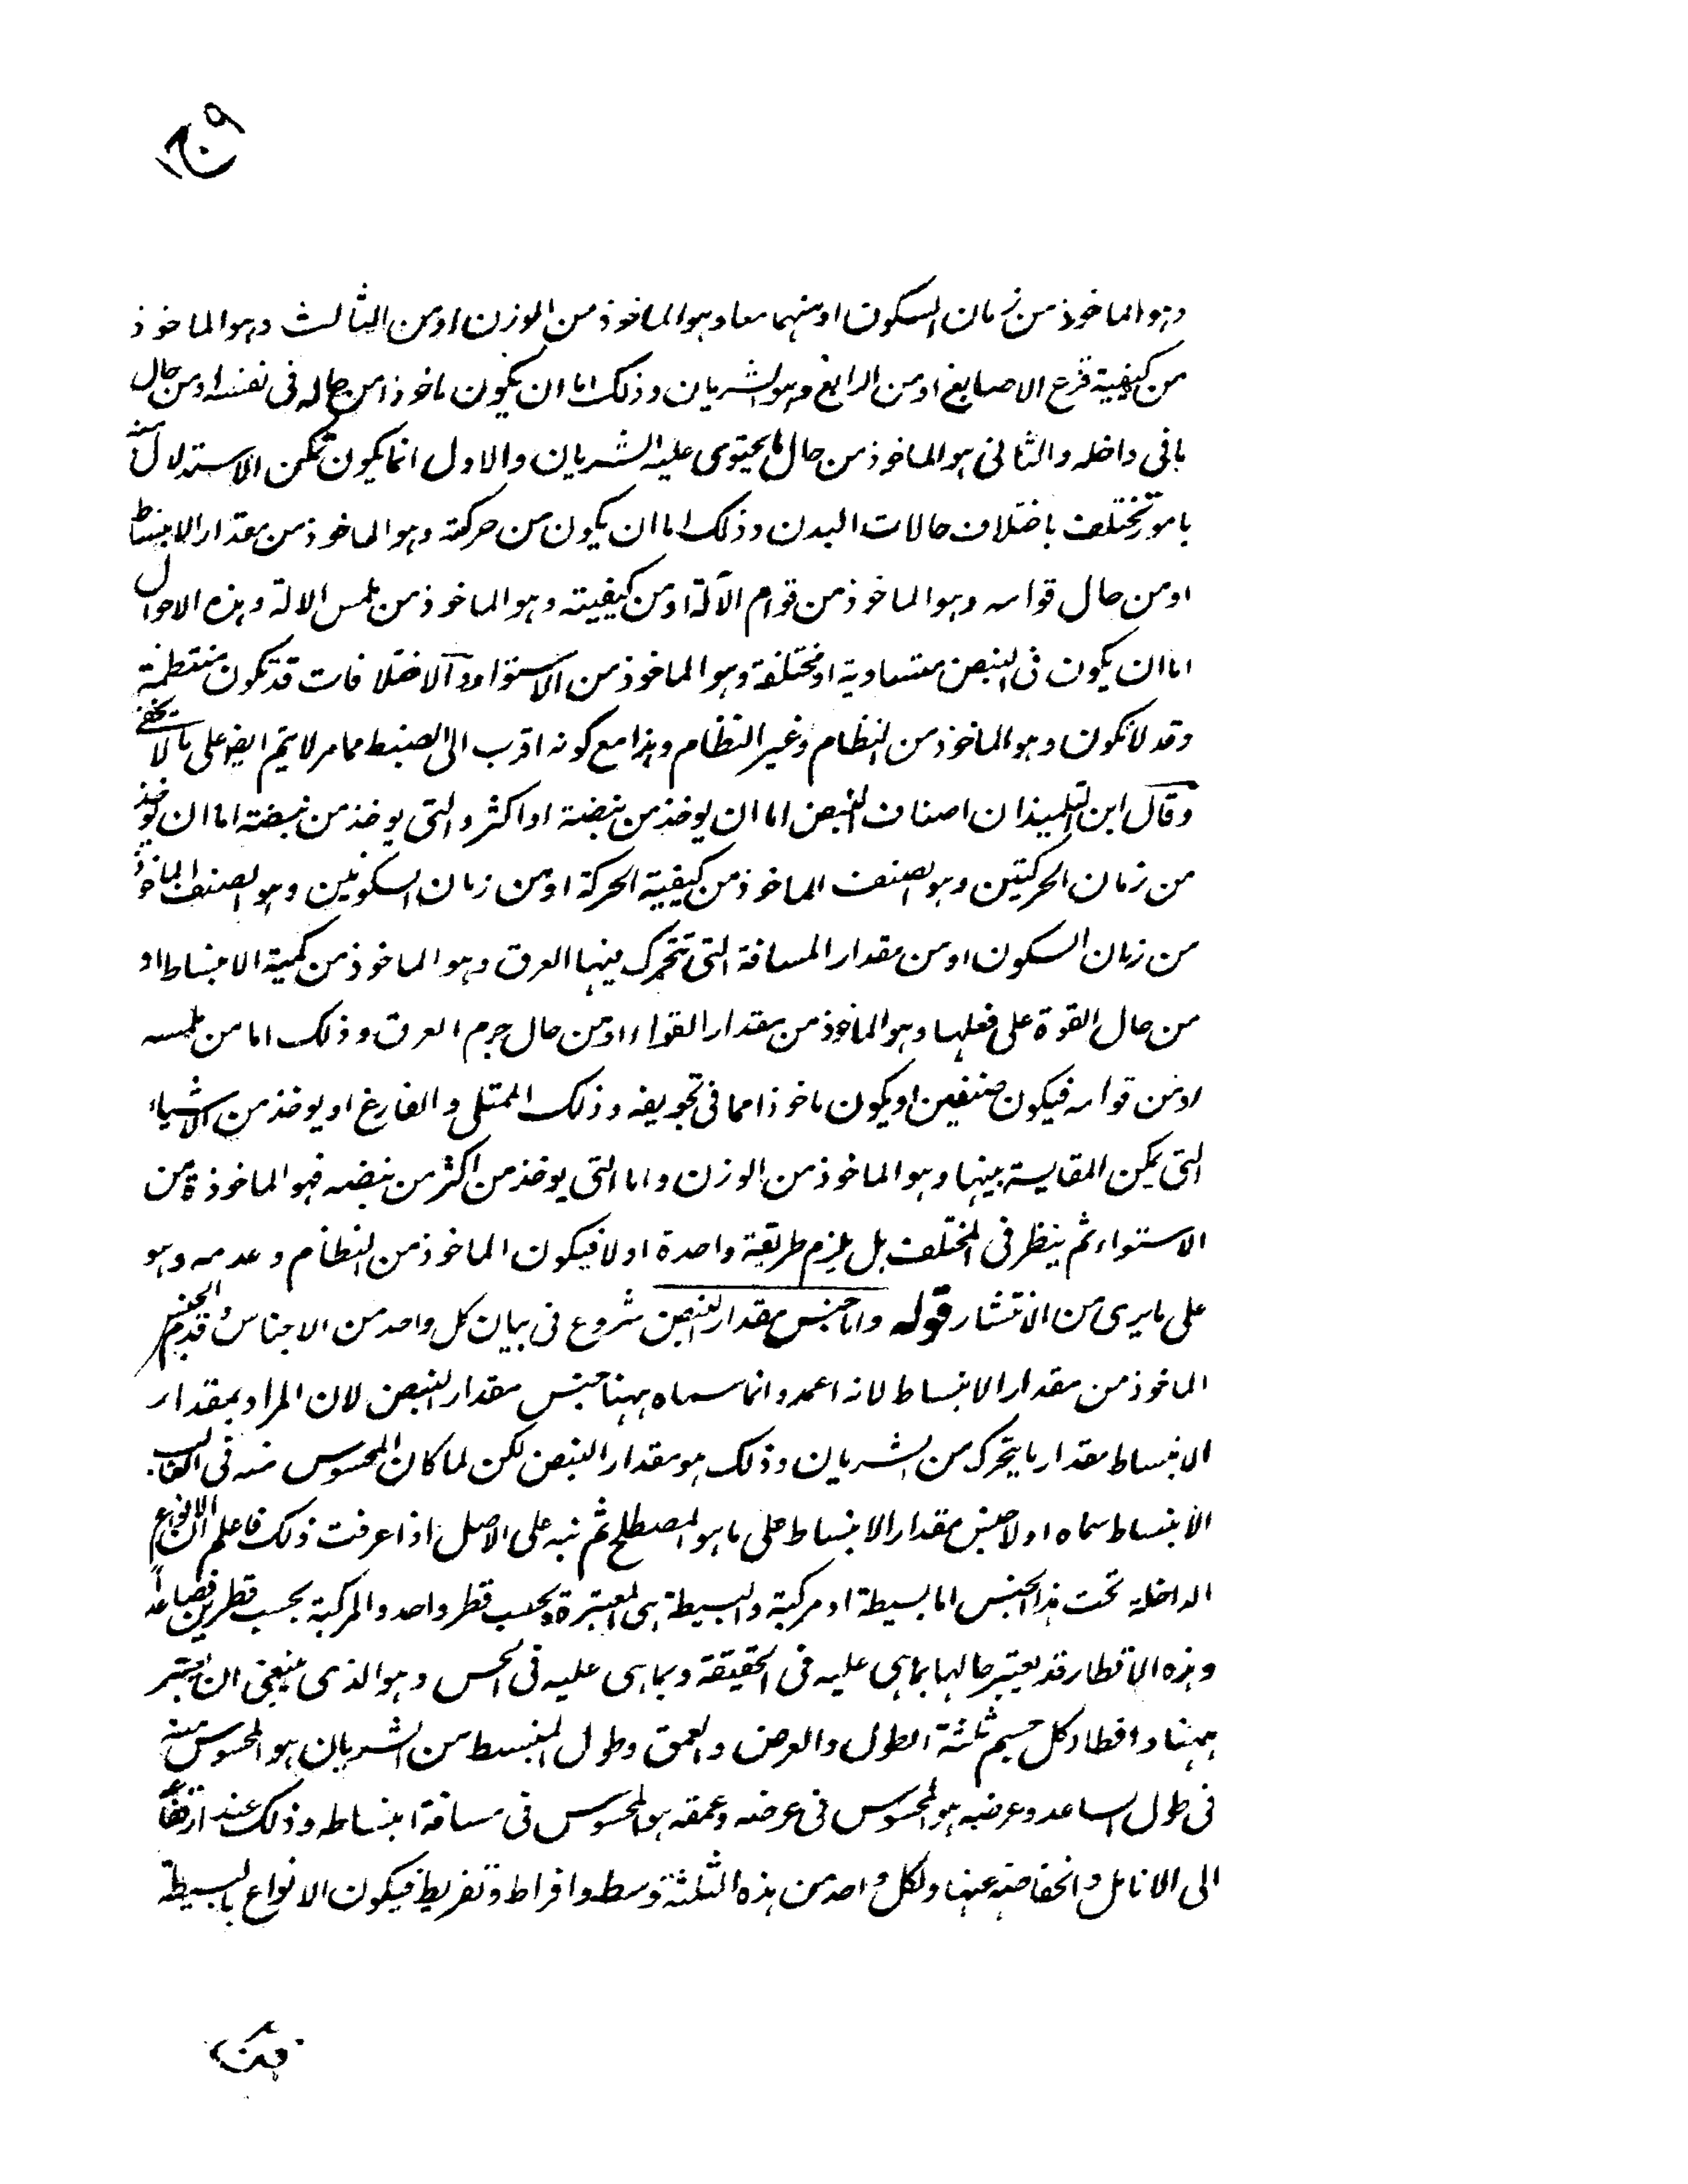 وهو الماخوذ من زمان السكون او منهما معا وهو الماخوذ من الوزن او من الثالث وهو الماخوذ
من كيفية قرع الاصابع او من الرابع وهو الشريان وذلك اما ان يكون ماخوذا من حاله فى نفسه او من حال
ما فى داخله والثانى هو الماخوذ من حال ما يحتوى عليه الشريان والاول انما يكون تمكن الاستدلال منه
بامور تختلف باختلاف حالات البدن وذلك اما ان يكون من حركته وهو الماخوذ من مقدار الانبساط
او من حال قوامه وهو الماخوذ من قوام الآلة او من كيفيته وهو الماخوذ من ملمس الالة وهذه الاحوال
اما ان يكون فى النبض متساوية او مختلفة وهو الماخوذ من الاستوا والاختلافات قد تكون منتظمة
وقد لا تكون وهو الماخوذ من النظام وغير النظام وهذا مع كونه اقرب الى الضبط مما مر لا يتم ايضا على ما لا يخفى
وقال ابن التلميذ ان اصناف النبض اما ان يوخذ من نبضة او اكثر والتى يوخذ من نبضة اما ان يوخذ
من زمان الحركتين وهو الصنف الماخوذ من كيفية الحركة او من زمان السكونين وهو الصنف الماخوذ
من زمان السكون او من مقدار المسافة التى تتحرك فيها العرق وهو الماخوذ من كمية الانبساط او
من حال القوة على فعلها وهو الماخوذ من مقدار القوا او من حال جرم العرق وذلك اما من ملمسه
او من قوامه فيكون صنفين او يكون ماخوذا مما فى تجويفه وذلك الممتلى والفارغ او يوخذ من الاشياء
التى يمكن المقايسة بينها وهو الماخوذ من الوزن واما التى يوخذ من اكثر من نبضه فهو الماخوذة من
الاستواء ثم ينظر فى المختلف بل يلزم طريقة واحدة او لا فيكون الماخوذ من النظام وعدمه وهو
على ما يرى من الانتشار قوله واما جنس مقدار النبض شروع فى بيان كل واحد من الاجناس وقدم الجنس
الماخوذ من مقدار الانبساط لانه اعمد وانما سماه ههنا جنس مقدار النبض لان المراد بمقدار
الانبساط مقدار ما يتحرك من الشريان وذلك هو مقدار النبض لكن لما كان المحسوس منه فى الغالب
الانبساط سماه اولا جنس مقدار الانبساط على ما هو المصطلح ثم نبه على الاصل اذا عرفت ذلك فاعلم ان الانواع
الداخلة تحت هذا الجنس اما بسيطة او مركبة والبسيطة هى المعتبرة بحسب قطر واحد والمركبة بحسب قطرين فصاعدا
وهذه الاقطار قد يعتبر حالها بما هى عليه فى الحقيقة وبما هى عليه فى الحس وهو الذى ينبغى ان يعتبر
ههنا واقطار كل جسم ثلثة الطول والعرض والعمق وطول المنبسط من الشريان هو المحسوس منه
فى طول الساعد وعرضه هو المحسوس فى عرضه وعمقه هو المحسوس فى مسافة انبساطه وذلك عند ارتفاعه
الى الانامل وانخفاضه عنها ولكل واحد من هذه الثلثة وسط وافراط وتفريط فيكون الانواع البسيطة